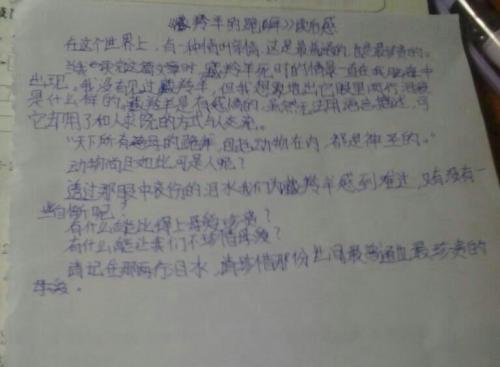 《藏羚羊的跪拜》读后感
在这个世界上，有一种情叫亲情，这是最普通的，也是最珍贵的。
当我读完这篇文章时，藏羚羊死时的情景一直在我脑海中
出现。我没有见过藏羚羊，但我想象得出它眼里两行泪
是什么样的。藏羚羊是有感情的，虽然无法用语言描述，可
它却用了和人求饶的方式与人交流。
“天下所有慈母的跪拜，包括动物在内，都是神圣的。”
动物尚且如此可是人呢？
透过那眼中哀伤的泪水我们为藏羚羊感到难过，又有没有一
些自惭呢？
有什么能比得上母爱珍贵？
有什么能让我们不珍惜母爱？
请记住那两行泪水，请珍惜那份世间最普通且最珍贵的
母爱。